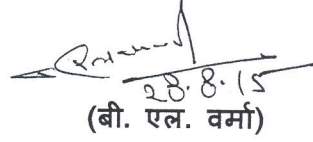 28.8.15
(बी. एल. वर्मा)